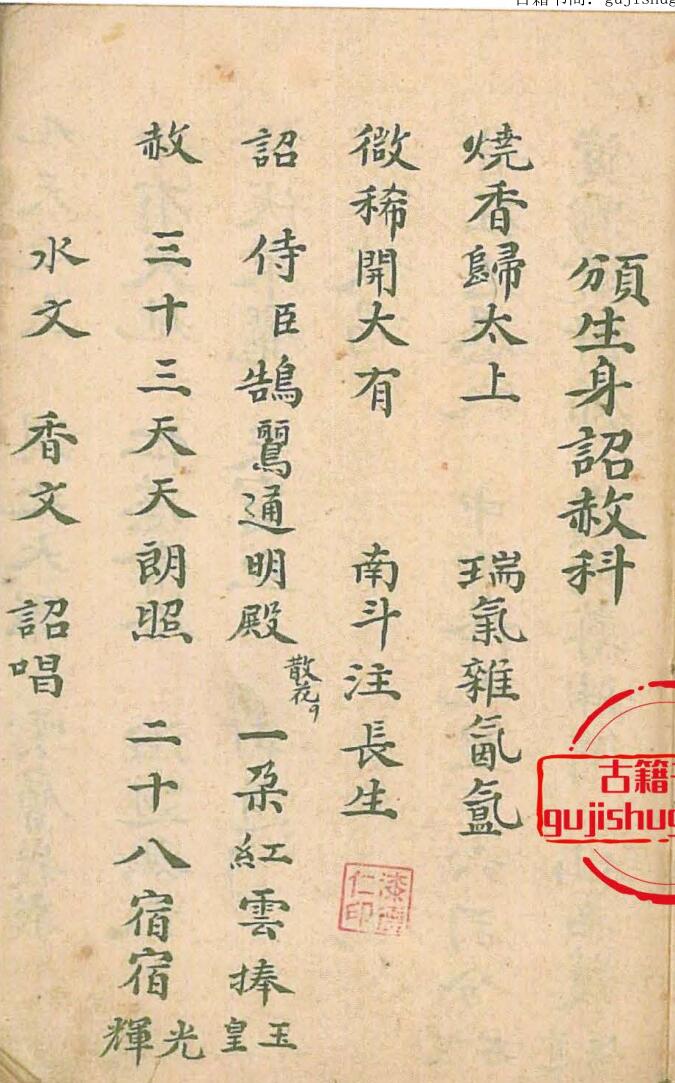 古籍书阁: gujishug
頒生身詔赦科
燒香歸太上 瑞氣雜氤氳
微稀開大有 南斗注長生
詔 侍臣鵠通明殿 散花 一朶紅雲捧玉皇
赦 三十三天天朗照 二十八宿宿光輝
水文 香文 詔唱
仁印
古籍
gujishug